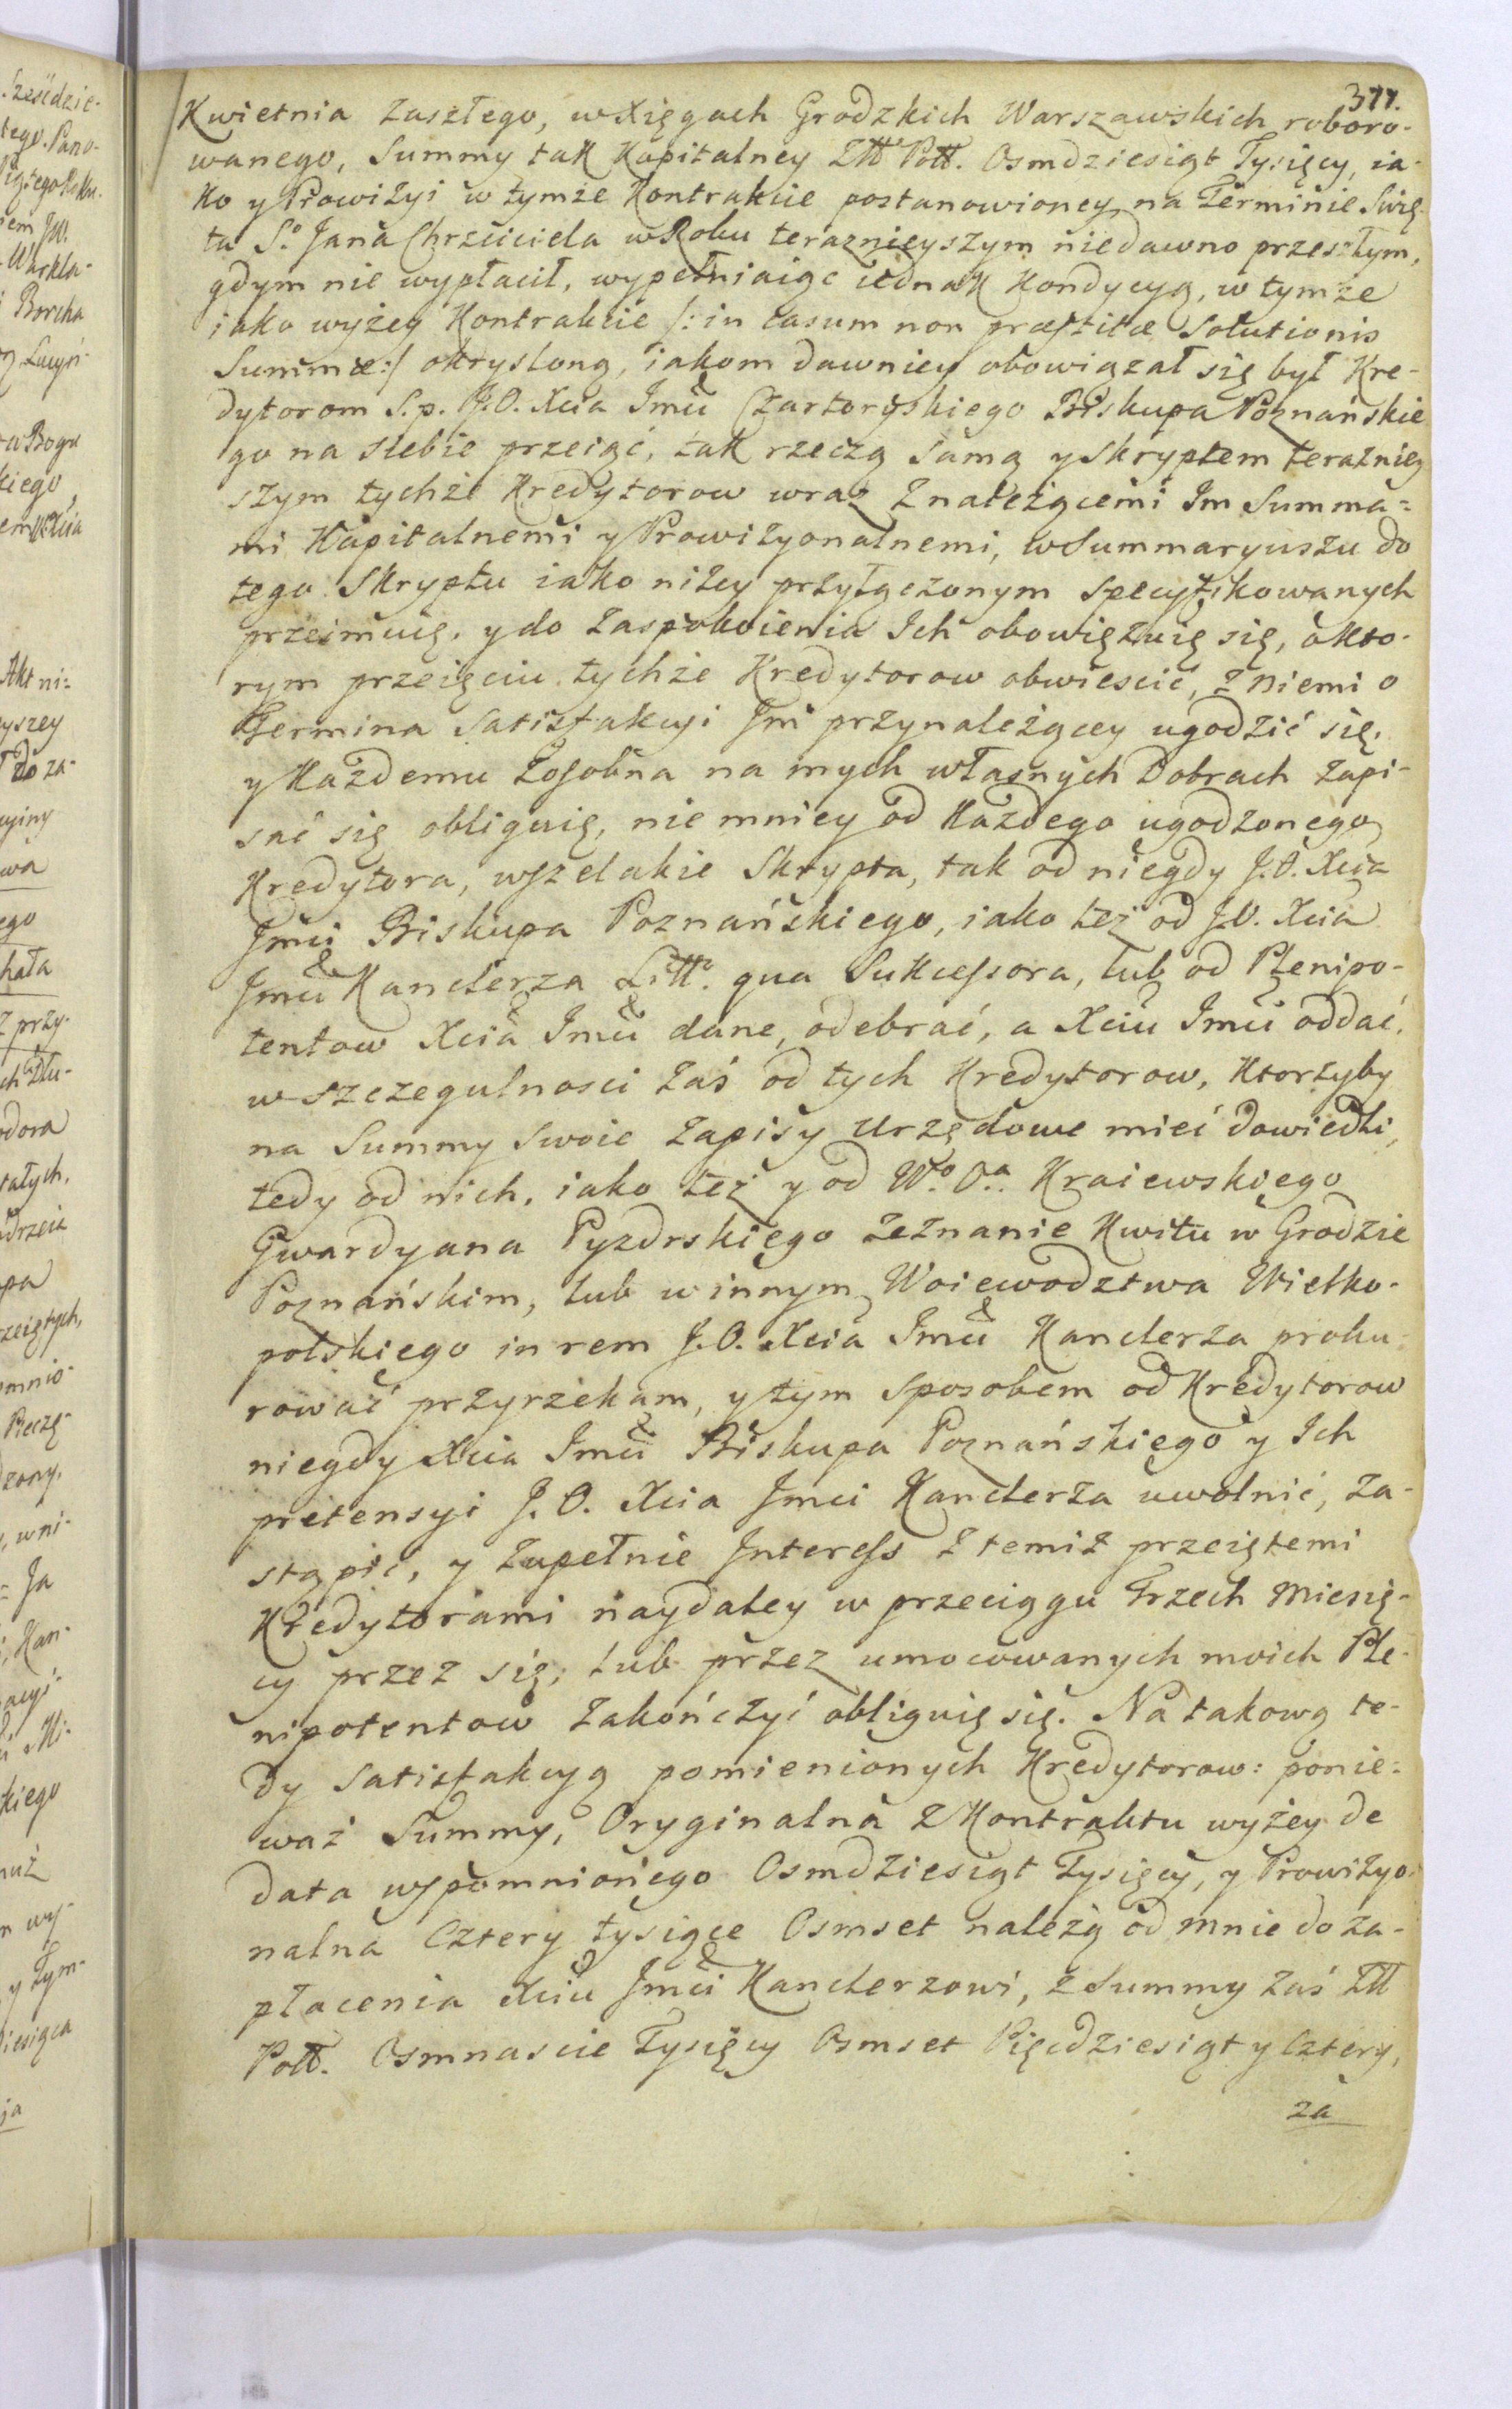 377.
Kwietnia zaszłego, w Xięgach Grodzkich Warszawskich roboro-
wanego, Summy tak Kapitalney Złł Poll. Osmdziesiąt Tysięcy, ia-
ko y Prowizyi w tymże Kontrakcie postanowioney na Terminie Swię-
ta So Jana Chrzciciela w Roku teraznieyszym niedawno przeszłym,
gdym nie wypłacił, wypełniaiąc iednak Kondycyą, w tymże
iako wyżey Kontrakcie /: in casum non præstitæ Solutionis
Summæ :/ okrysloną, iakom dawniey obowiązał się był Kre-
dytorom S. p. J. O. Xcia Jmci Czartoryskiego Biskupa Poznańskie
go na siebie przeiąć, tak rzeczą samą y Skryptem terazniey
szym tychże Kredytorow wraz z należącemi Im Summa=
mi Kapitalnemi y Prowizyonalnemi, w Summaryuszu do
tego Skryptu iako niżey przyłączonym specyfikowanych
przeimuię, y do zaspokoienia Ich obowięzuię się, o kto-
rym przeięciu tychże Kredytorow obwiescić, z Niemi o
Termina Satisfakcyi Im przynależącey ugodzić się,
y Każdemu zosobna na mych własnych Dobrach zapi-
sać się obliguię, nie mniey od Każdego ugodzonego
Kredytora, wszelakie Skrypta, tak od niegdy J. O. Xcia
Jmci Biskupa Poznańskiego, iako też od J. O. Xcia
Jmci Kanclerza Litto. qua Sukcessora, lub od Plenipo-
tentow Xcia Jmci dane, odebrać, a Xciu Jmci oddać,
w szczegulnosci zaś od tych Kredytorow, ktorzyby
na Summy Swoie zapisy Urzędowe mieć dowiedli,
tedy od nich, iako też y od Wo. Oa. Kraiewskiego
Gwardyana Pyzdrskiego zeznanie Kwitu w Grodzie
Poznańskim, lub w innym Woiewodztwa Wielko-
polskiego in rem J. O. Xcia Jmci Kanclerza proku-
rować przyrzekam, y tym sposobem od Kredytorow
niegdy Xcia Jmci Biskupa Poznańskiego y Ich
pretensyi J. O. Xcia Jmci Kanclerza uwolnić, za-
stąpić, y zupełnie Interess z temiż przeiętemi
Kredytorami naydaley w przeciągu Trzech Miesię-
cy przez się, lub przez umocowanych moich Ple-
nipotentow zakończyć obliguię się. Na takową te-
dy Satisfakcyą pomienionych Kredytorow: ponie=
waż Summy, Oryginalna z Kontraktu wyżey de
data wspomnionego Osmdziesiąt Tysięcy, y Prowizyo
nalna Cztery tysiące Osmset należą od mnie do za-
płacenia Xciu Jmci Kanclerzowi, z Summy zaś Złł
Poll. Osmnascie Tysięcy Osmset Pięcdziesiąt y Cztery,
za